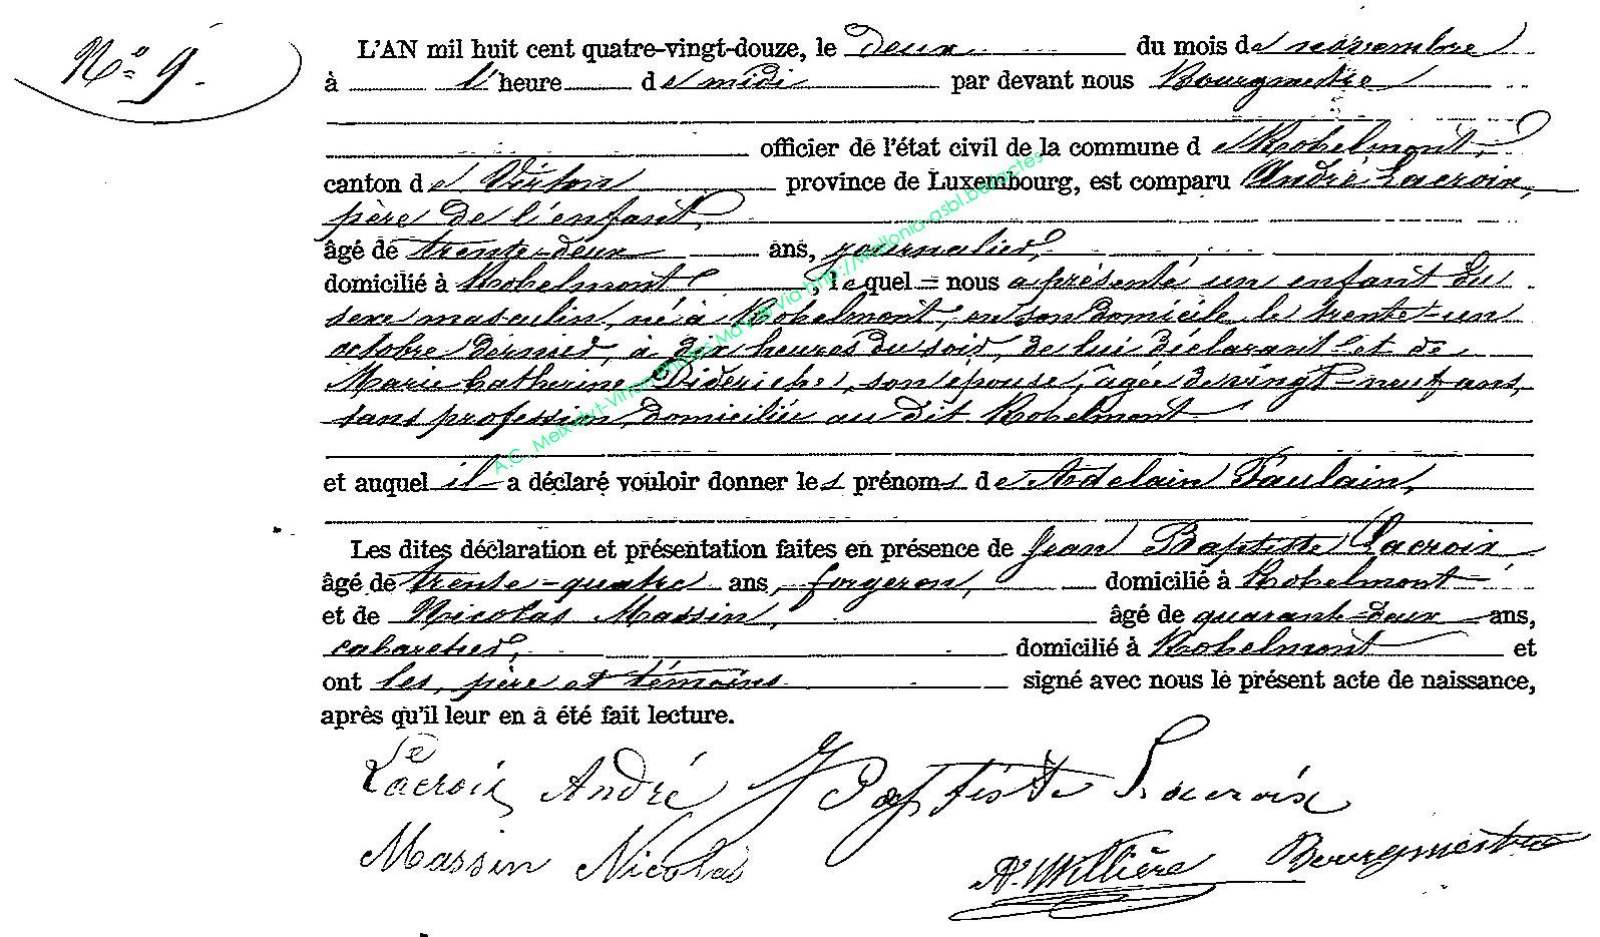 N° 9.
L'AN mil huit cent quatre-vingt-douze, le deux du mois de novembre
à l'heure de midi par devant nous Bourgmestre
officier de l'état civil de la commune de Robelmont,
canton de Virton province de Luxembourg, est comparu André Lacroix,
père de l'enfant,
âgé de trente-deux ans, journalier,
domicilié à Robelmont, lequel = nous a présenté un enfant du
sexe masculin, né à Robelmont, en son domicile le trente-un
octobre dernier, à dix heures du soir, de lui déclarant et de
Marie Catherine Dideriche, son épouse, âgée de vingt-neuf ans,
sans profession, domiciliée au dit Robelmont
et auquel il a déclaré vouloir donner les prénoms de Adelain Paulain,
Les dites déclaration et présentation faites en présence de Jean Baptiste Lacroix
âgé de trente-quatre ans, forgeron, domicilié à Robelmont
et de Nicolas Massin, âgé de quarante-deux ans,
cabaretier, domicilié à Robelmont et
ont les, père et témoins signé avec nous le présent acte de naissance,
après qu'il leur en a été fait lecture.
Lacroix André J Baptiste Lacroix
Massin Nicolas Bourgmestre